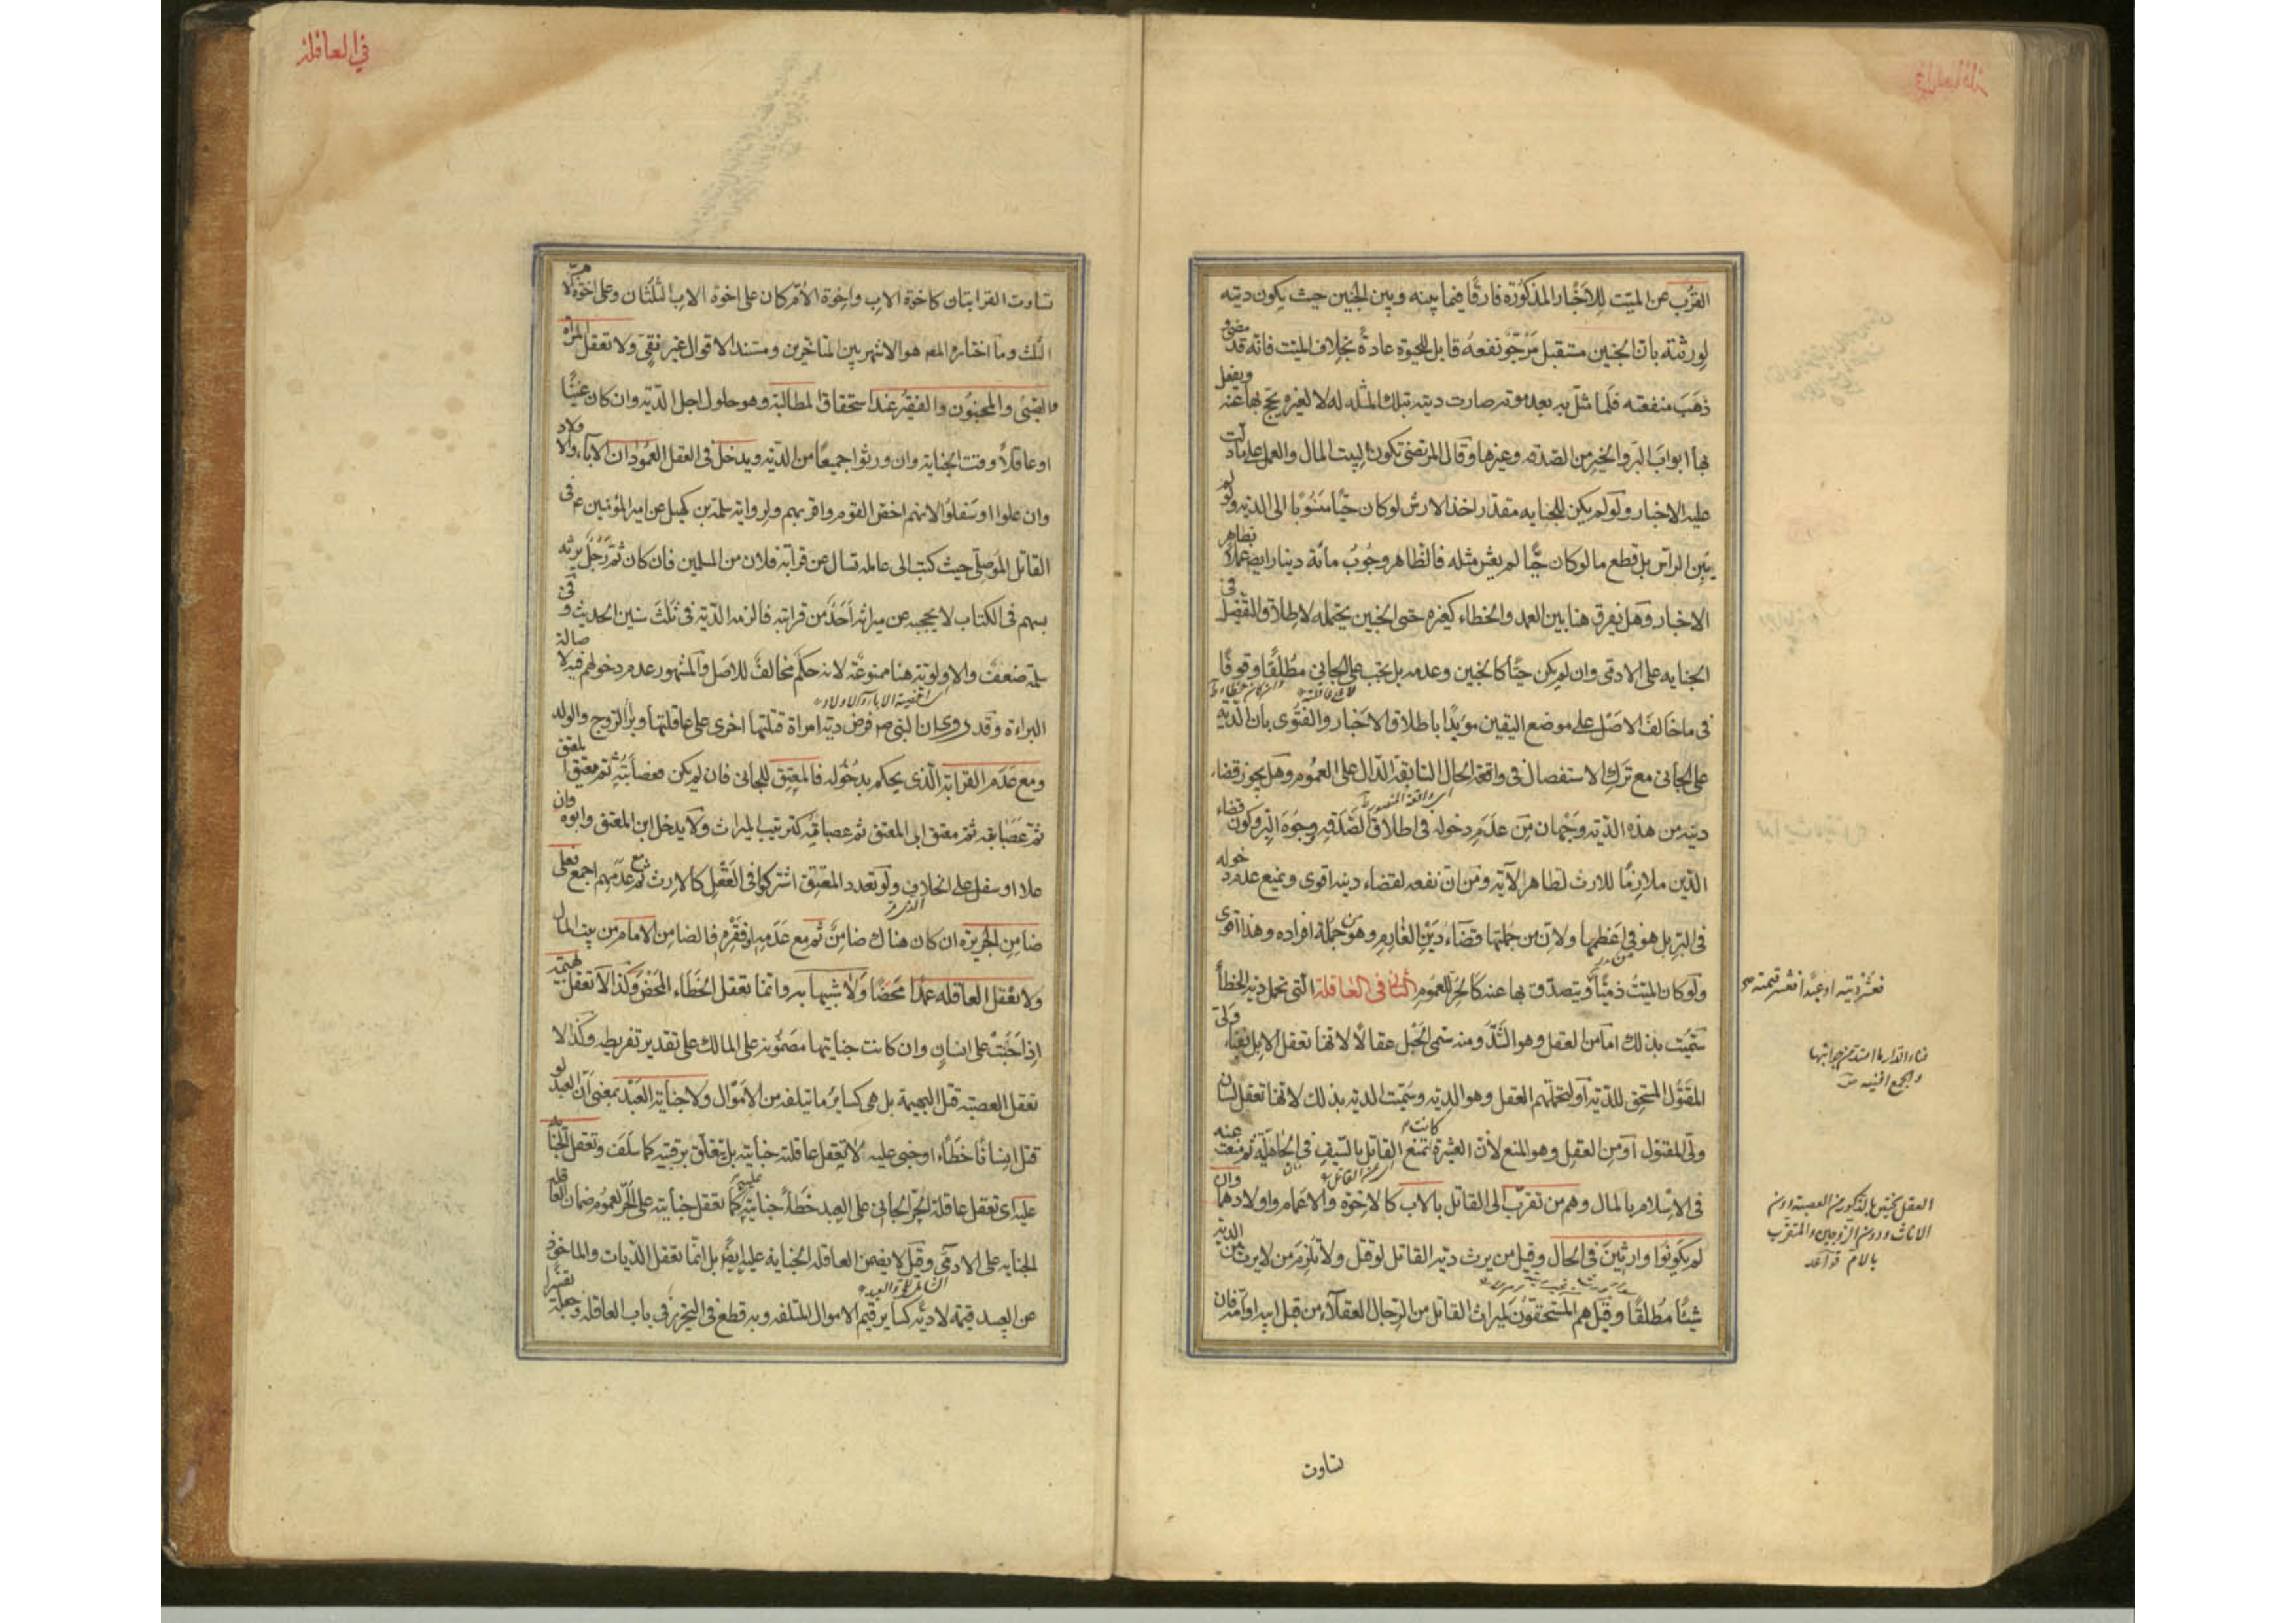 القرب عن الميت للاخبار المذكورة فارقا فيما بينه وبين الجنين حيث يكون ديته
لورثته بان الجنين مستقبل مرجو نفعه قابل للحيوة عادة بخلاف الميت فانه قد مضى و
ذهب منفعته فلما مثل به بعد موته صارت ديته بتلك المثلة له لا لغيره يحج بها عنه ويفعل
بها ابواب البر والخير من الصدقه وغيرها وقال المرتضى تكون لبيت المال والعمل على ما دلت
عليه الاخبار ولو لم يكن للجنايه مقدر اخذ الارش لو كان حيا منسوبا الى الديه ولو لم
يبن الراس بل قطع ما لو كان حيا لم يعش مثله فالظاهر وجوب مائة دينار ايضا عملا بظاهر
الاخبار وهل يفرق هنا بين العمد والخطاء كغيره حتى الجنين يحتمله لاطلاق التفصيل في
الجنايه على الادمى وان لم يكن حيا كالجنين وعدمه بل يجب على الجاني مطلقا وقوفا
فى ما خالف الاصل على موضع اليقين مويدا باطلاق الاخبار والفتوى بان الديه
على الجانى مع ترك الاستفصال فى واقعة الحال السابقة الدال على العموم وهل يجوز قضاء
اى واقعة المنصور
دينه من هذه الديه وجهان من عدم دخوله فى اطلاق الصدقه ووجوه البر وكون قضاء
الدين ملازما للارث لظاهر الآيه ومن ان نفعه لقضاء دينه اقوى ونمنع عدم دخوله
فى البر بل هو من اعظمها ولان من جملتها قضاء دين الغارم وهو من جملة افراده وهذا اقوى
ولو كان الميت ذميا ويتصدق بها عنه كالحر للعموم الثانى فى العاقلة التى تحمل دية الخطأ
سميت بذلك اما من العقل وهو الشد ومنه سمى الحبل عقالا لانها تعقل الابل بفناء ولى
المقتول المستحق للدية او لتحملهم العقل وهو الديه وسميت الديه بذلك لانها تعقل لسان
ولى المقتول او من العقل وهو المنع لان العشيرة كانت تمنع القاتل بالسيف فى الجاهلية ثم منعت عنه
فى الاسلام بالمال وهم من تقرب الى القاتل بالاب كالاخوة والاعمام واولادهما وان
لم يكونوا وارثين فى الحال وقيل من يرث دية القاتل لو قتل ولا تلزم من لا يرث من الدية
شيئا مطلقا وقيل هم المستحقون لميراث القاتل من الرجال العقلاء من قبل ابيه او امه فان
تساوت
فعشر ديته او عبدا فعشر قيمته صح
فناء الدار ما امتد من جوانبها
والجمع افنيه
العقل يختص بالذكور من العصبة دون
الاناث ودون الزوجين والمتقرب
بالام قواعد
في العاقلة
تساوت القرابتان كاخوة الاب واخوة الام كان على اخوة الاب الثلثان وعلى اخوة الام
الثلث وما اختاره المصـ هو الاشهر بين المتاخرين ومستند الاقوال غير نقى ولا تعقل المراة
والصبى والمجنون والفقير عند استحقاق المطالبة وهو حلول اجل الدية وان كان غنيا
او عاقلا وقت الجناية وان ورثوا جميعا من الدية ويدخل فى العقل العمودان الاباء والاولاد
وان علوا او سفلوا لانهم اخص القوم واقربهم ولرواية سلمة بن كهيل عن امير المؤمنين ع فى
القاتل الموصلى حيث كتب الى عامله تسال عن قرابة فلان من المسلمين فان كان ثم رجل يرثه
بسهم فى الكتاب لا يحجبه عن ميراثه احد من قرابته فالزمه الدية فى ثلث سنين الحديث وفى
سلمة ضعف والاولوية هنا ممنوعة لانه حكم مخالف للاصل والمشهور عدم دخولهم فيه لاصالة
البراءة وقد روى ان النبى ص فرض دية امراة قتلتها اخرى على عاقلتها وبرأ الزوج والولد
ومع عدم القرابة الذى يحكم بدخوله فالمعتق للجانى فان لم يكن فعصابته ثم معتق المعتق
ثم عصابته ثم معتق ابى المعتق ثم عصابته كترتيب الميراث ولا يدخل ابن المعتق وابوه وان
علا او سفل على الخلاف ولو تعدد المعتق اشتركوا فى العقل كالارث ثم مع عدمهم اجمع فعلى
ضامن الجريرة ان كان هناك ضامن ثم مع عدمه او فقره فالضامن الامام من بيت المال
ولا تعقل العاقله عمدا محضا ولا شبيها به وانما تعقل الخطاء المحض وكذا لا تعقل بهيمة
اذا جنت على انسان وان كانت جنايتها مضمونه على المالك على تقدير تفريطه وكذا لا
تعقل العصبة قتل البهيمة بل هى كساير ما يتلفه من الاموال ولا جناية العبد بمعنى ان العبد لو
قتل انسانا خطاء او جنى عليه لا يعقل عاقلته جنايته بل يتعلق برقبته كما سلف وتعقل الجناية
عليه اى تعقل عاقلة الحر الجانى على العبد خطأ جنايته عليه كما تعقل جنايته على الحر لعموم ضمان العاقله
الجنايه على الادمى وقيل لا يضمن العاقله الجناية عليه ايضا بل انما تعقل الديات والماخوذ
عن العبد قيمة لا دية كساير قيم الاموال المتلفه وبه قطع فى التحرير فى باب العاقله وجعله تفسيرا